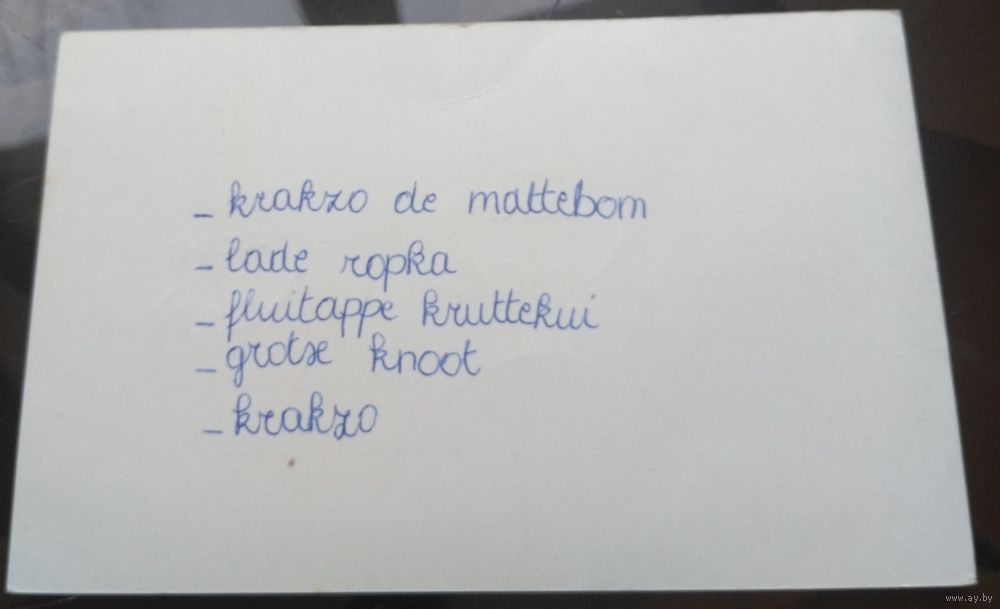 - krakzo de mattebom
- lade ropka
- fluitappe kruttekui
- grotse knoot
- krakzo
www.ay.by